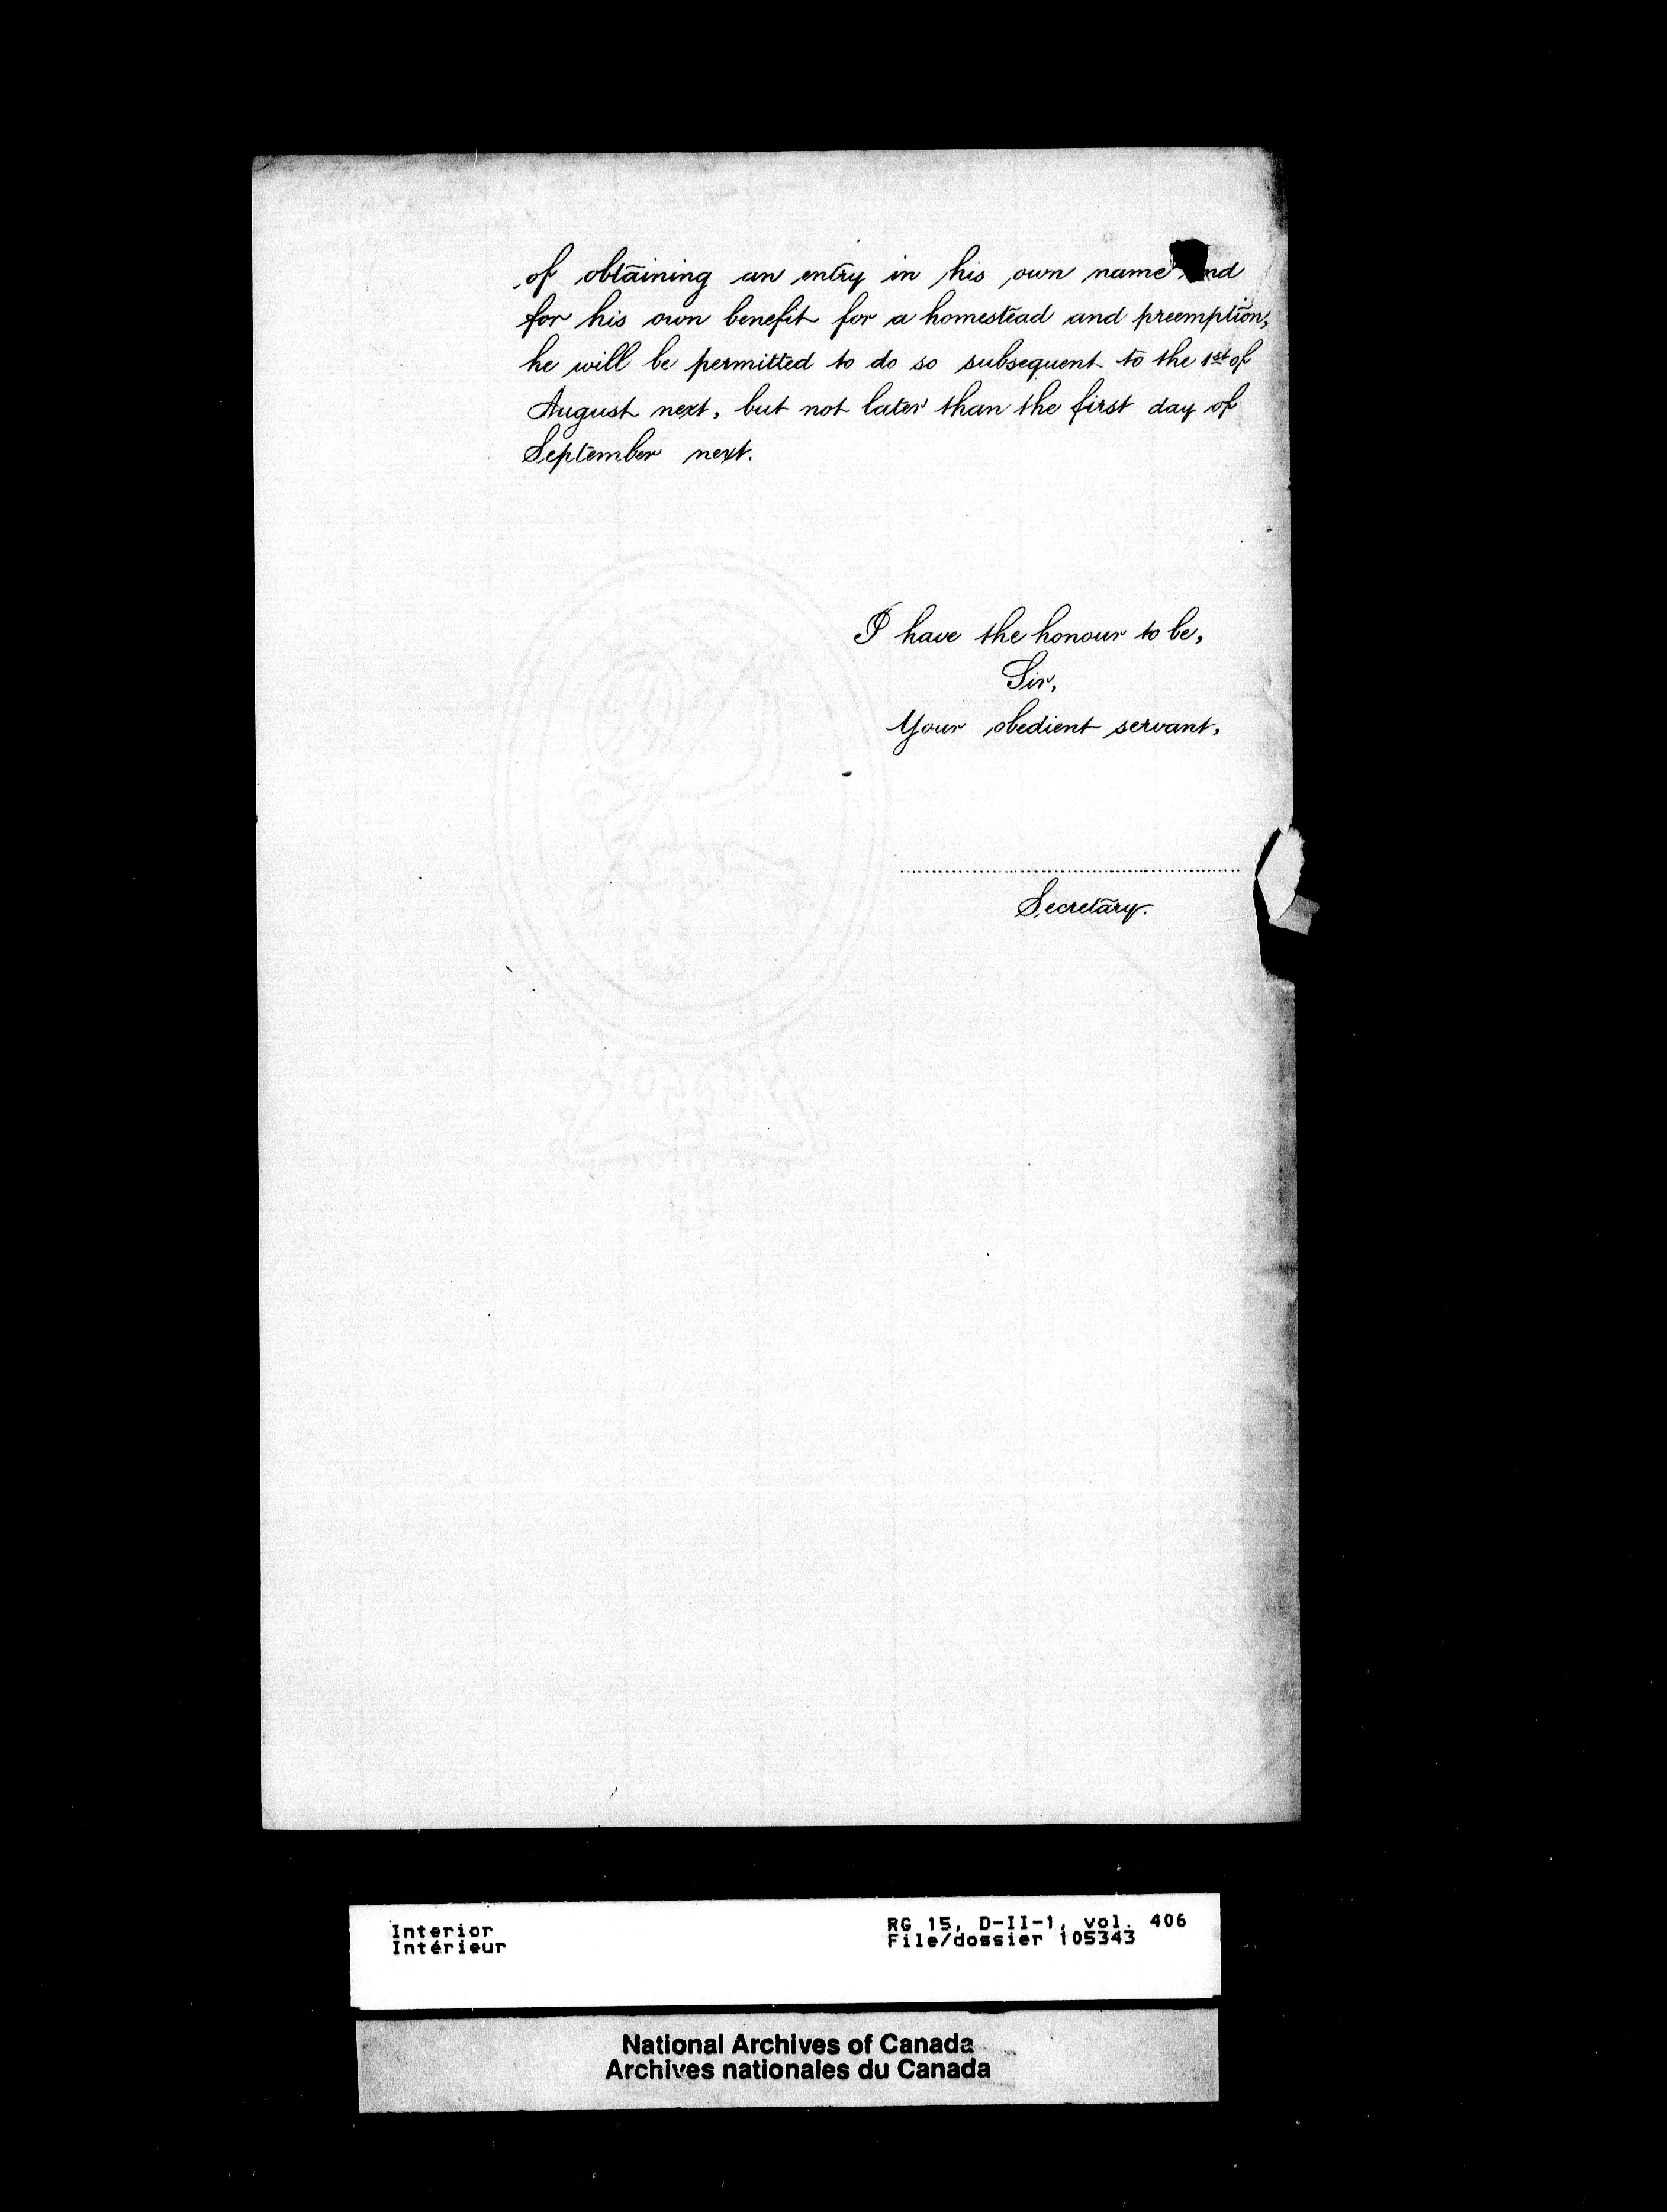 of obtaining an entry in his own name and
for his own benefit for a homestead and preemption,
he will be permitted to do so subsequent to the 1st of
August next, but not later than the first day of
September next.
I have the honour to be,
Sir,
Your obedient servant,
Secretary.
Interior
Intérieur
RG 15, D-II-1, vol. 406
File/dossier 105343
National Archives of Canada
Archives nationales du Canada